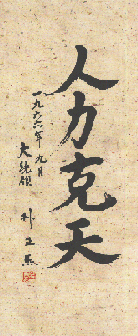 人力克天
一九六六年 九月
大統領
朴正熙